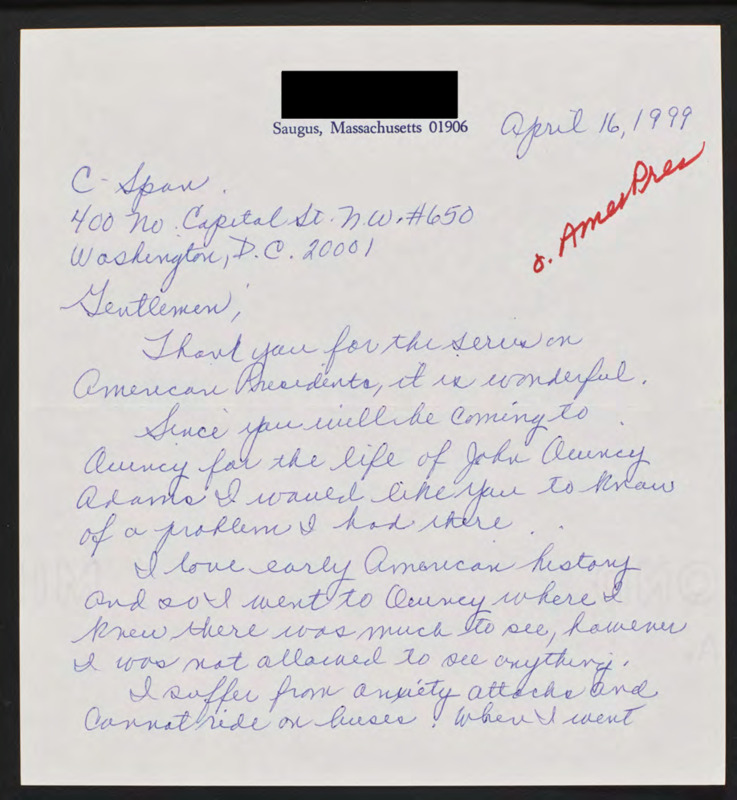 Saugus, Massachusetts 01906
April 16, 1999
o. AmerPres
C-Span.
400 No. Capital St. N.W. #650
Washington, D.C. 20001
Gentlemen,
Thank you for the series on
American Presidents, it is wonderful.
Since you will be coming to
Quincy for the life of John Quincy
Adams I would like you to know
of a problem I had there.
I love early American history
and so I went to Quincy where I
knew there was much to see, however
I was not allowed to see anything.
I suffer from anxiety attacks and
cannot ride on buses. When I went